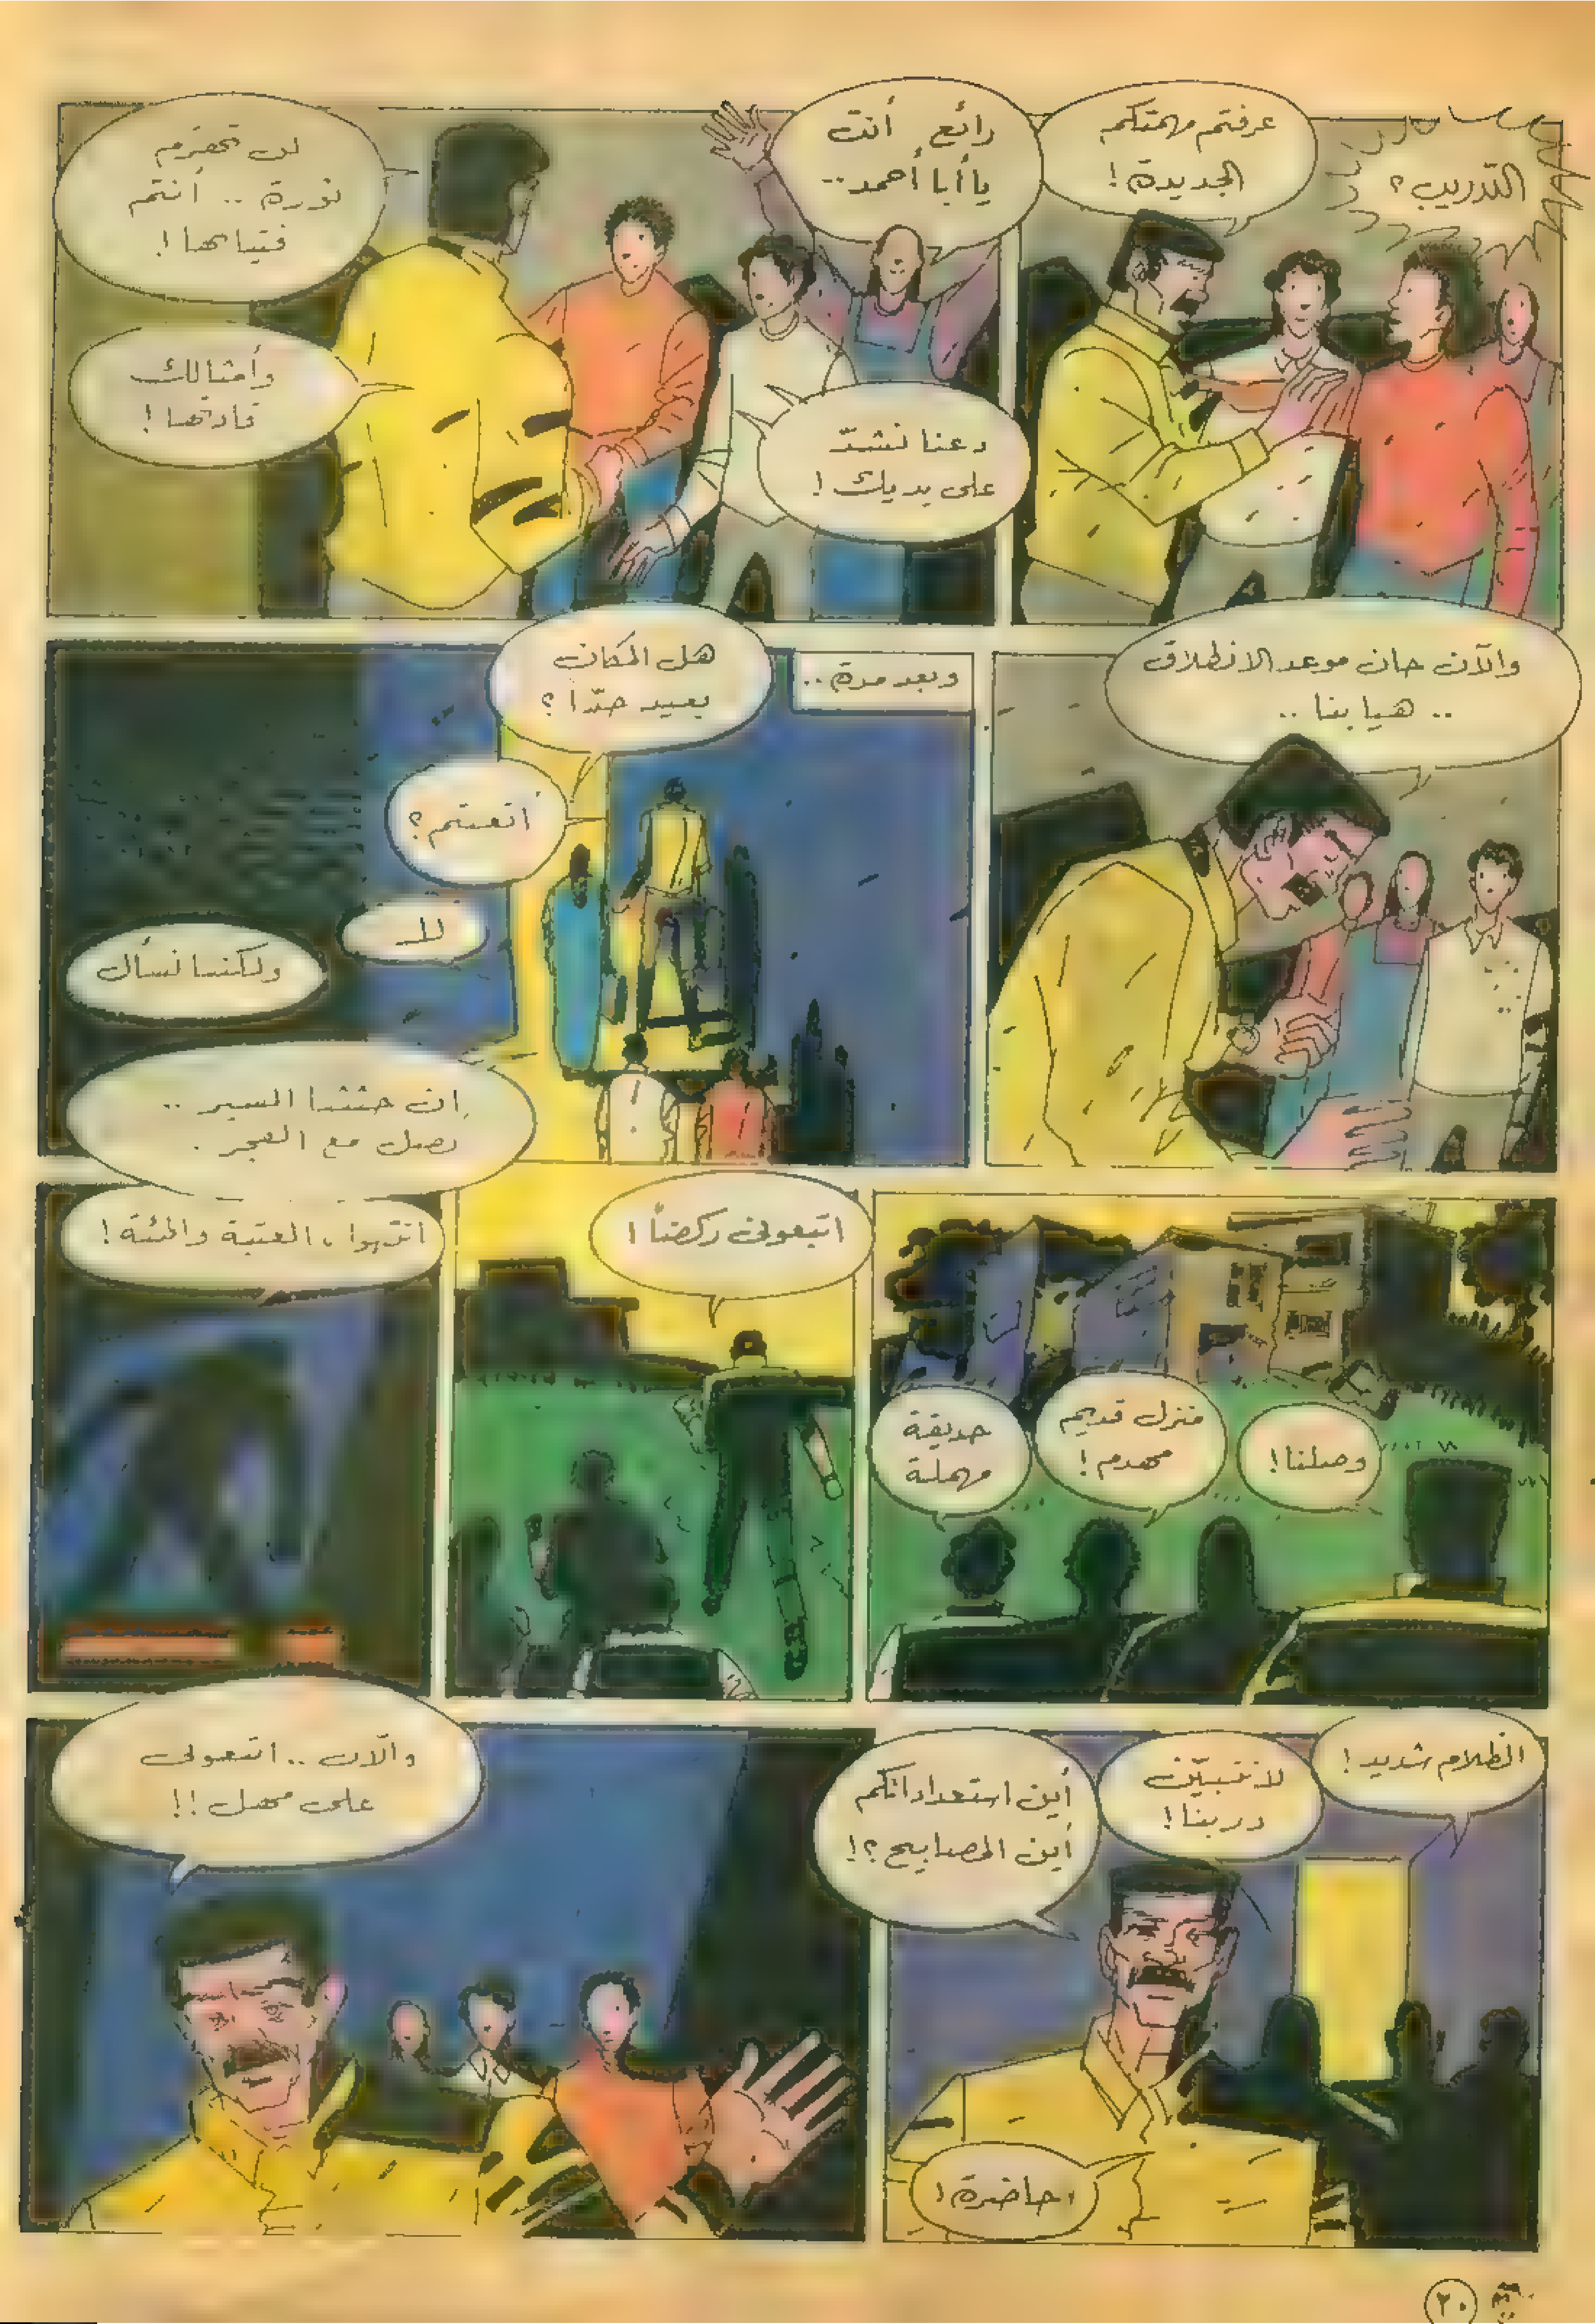 التدريب؟
عرفتم مهمتكم
الجديدة!
رائع أنت
يا أبا أحمد..
دعنا نشدّ
على يديك!
لن تهزم
ثورة .. أنتم
فتيانها!
وأمثالك
قادتها!
والآن حان موعد الانطلاق
.. هيا بنا ..
وبعد مدة ..
هل المكان
بعيد جدّاً؟
أتعبتم؟
لا
ولكننا نسأل
إن حثثنا السير ..
نصل مع الفجر .
وصلنا!
منزل قديم
مهدم!
حديقة
مهملة
اتبعوني ركضاً!
انتبهوا، العتبة
الظلام شديد!
لا نتبيّن
دربنا!
أين استعداداتكم
أين المصابيح؟!
حاضرة!
والآن .. اتبعوني
على مهل!!
٢٠